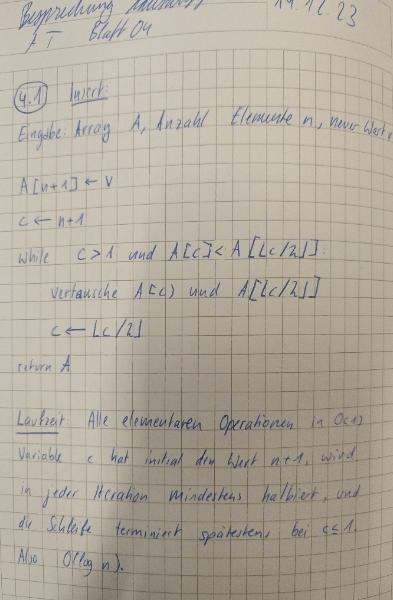 Besprechung
14.12.23
Blatt 04
4.1 Insert:
Eingabe: Array A, Anzahl Elemente n, neuer Wert v
A[n+1] ← v
c ← n+1
while c > 1 und A[c] < A[⌊c/2⌋]:
vertausche A[c] und A[⌊c/2⌋]
c ← ⌊c/2⌋
return A
Laufzeit: Alle elementaren Operationen in O(1)
Variable c hat initial den Wert n+1, wird
in jeder Iteration mindestens halbiert, und
die Schleife terminiert spätestens bei c ≤ 1.
Also O(log n).